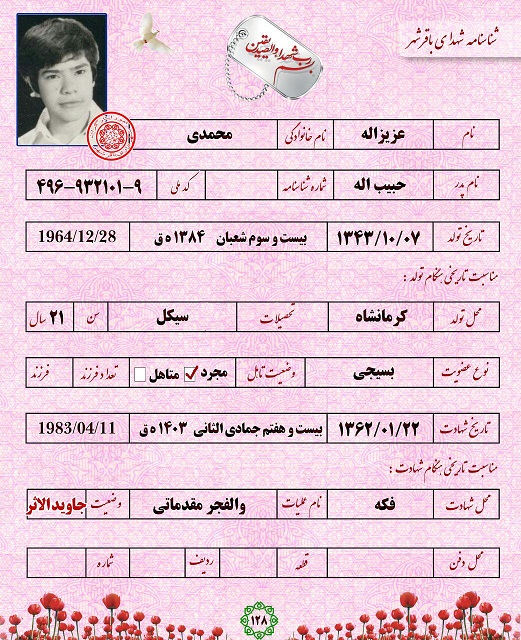 شناسنامه شهدای باقرشهر
بسم رب شهدا و الصدیقین
نام عزیزاله نام خانوادگی محمدی
نام پدر حبیب اله شماره شناسنامه کد ملی ۴۹۶-۹۳۲۱۰۱-۹
تاریخ تولد ۱۳۴۳/۱۰/۰۷ بیست و سوم شعبان ۱۳۸۴ ه ق 1964/12/28
مناسبت تاریخی هنگام تولد :
محل تولد کرمانشاه تحصیلات سیکل سن ۲۱ سال
نوع عضویت بسیجی وضعیت تاهل مجرد متاهل تعداد فرزند فرزند
تاریخ شهادت ۱۳۶۲/۰۱/۲۲ بیست و هفتم جمادی الثانی ۱۴۰۳ ه ق 1983/04/11
مناسبت تاریخی هنگام شهادت :
محل شهادت فکه نام عملیات والفجر مقدماتی وضعیت جاویدالاثر
محل دفن قطعه ردیف شماره
۱۲۸